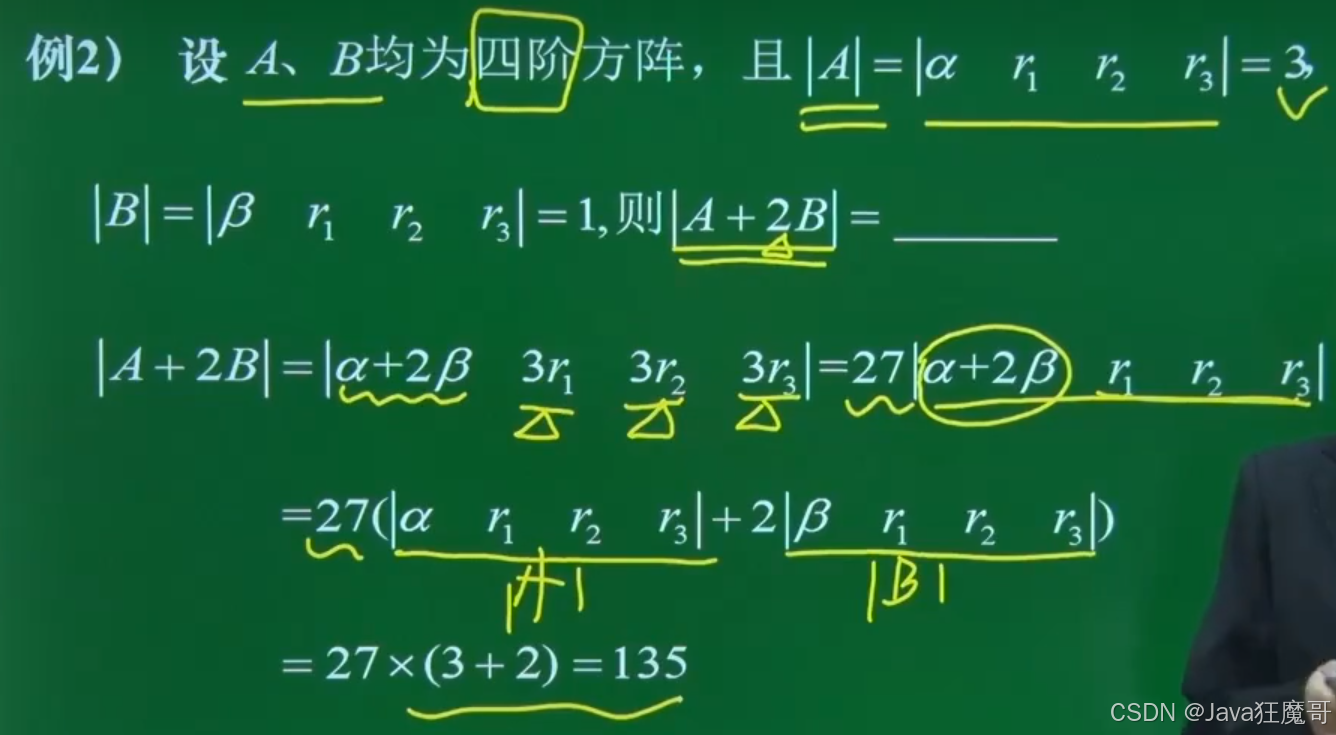 例2） 设 A、B均为四阶方阵，且|A|=|α r₁ r₂ r₃|=3,
|B|=|β r₁ r₂ r₃|=1,则|A+2B|=______
|A+2B|=|α+2β 3r₁ 3r₂ 3r₃|=27|α+2β r₁ r₂ r₃|
=27(|α r₁ r₂ r₃|+2|β r₁ r₂ r₃|)
|A| |B|
=27×(3+2)=135
CSDN @Java狂魔哥